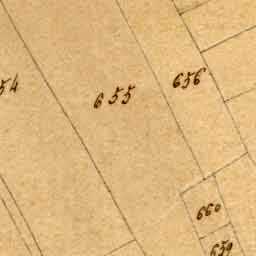 54
655
656
660
659